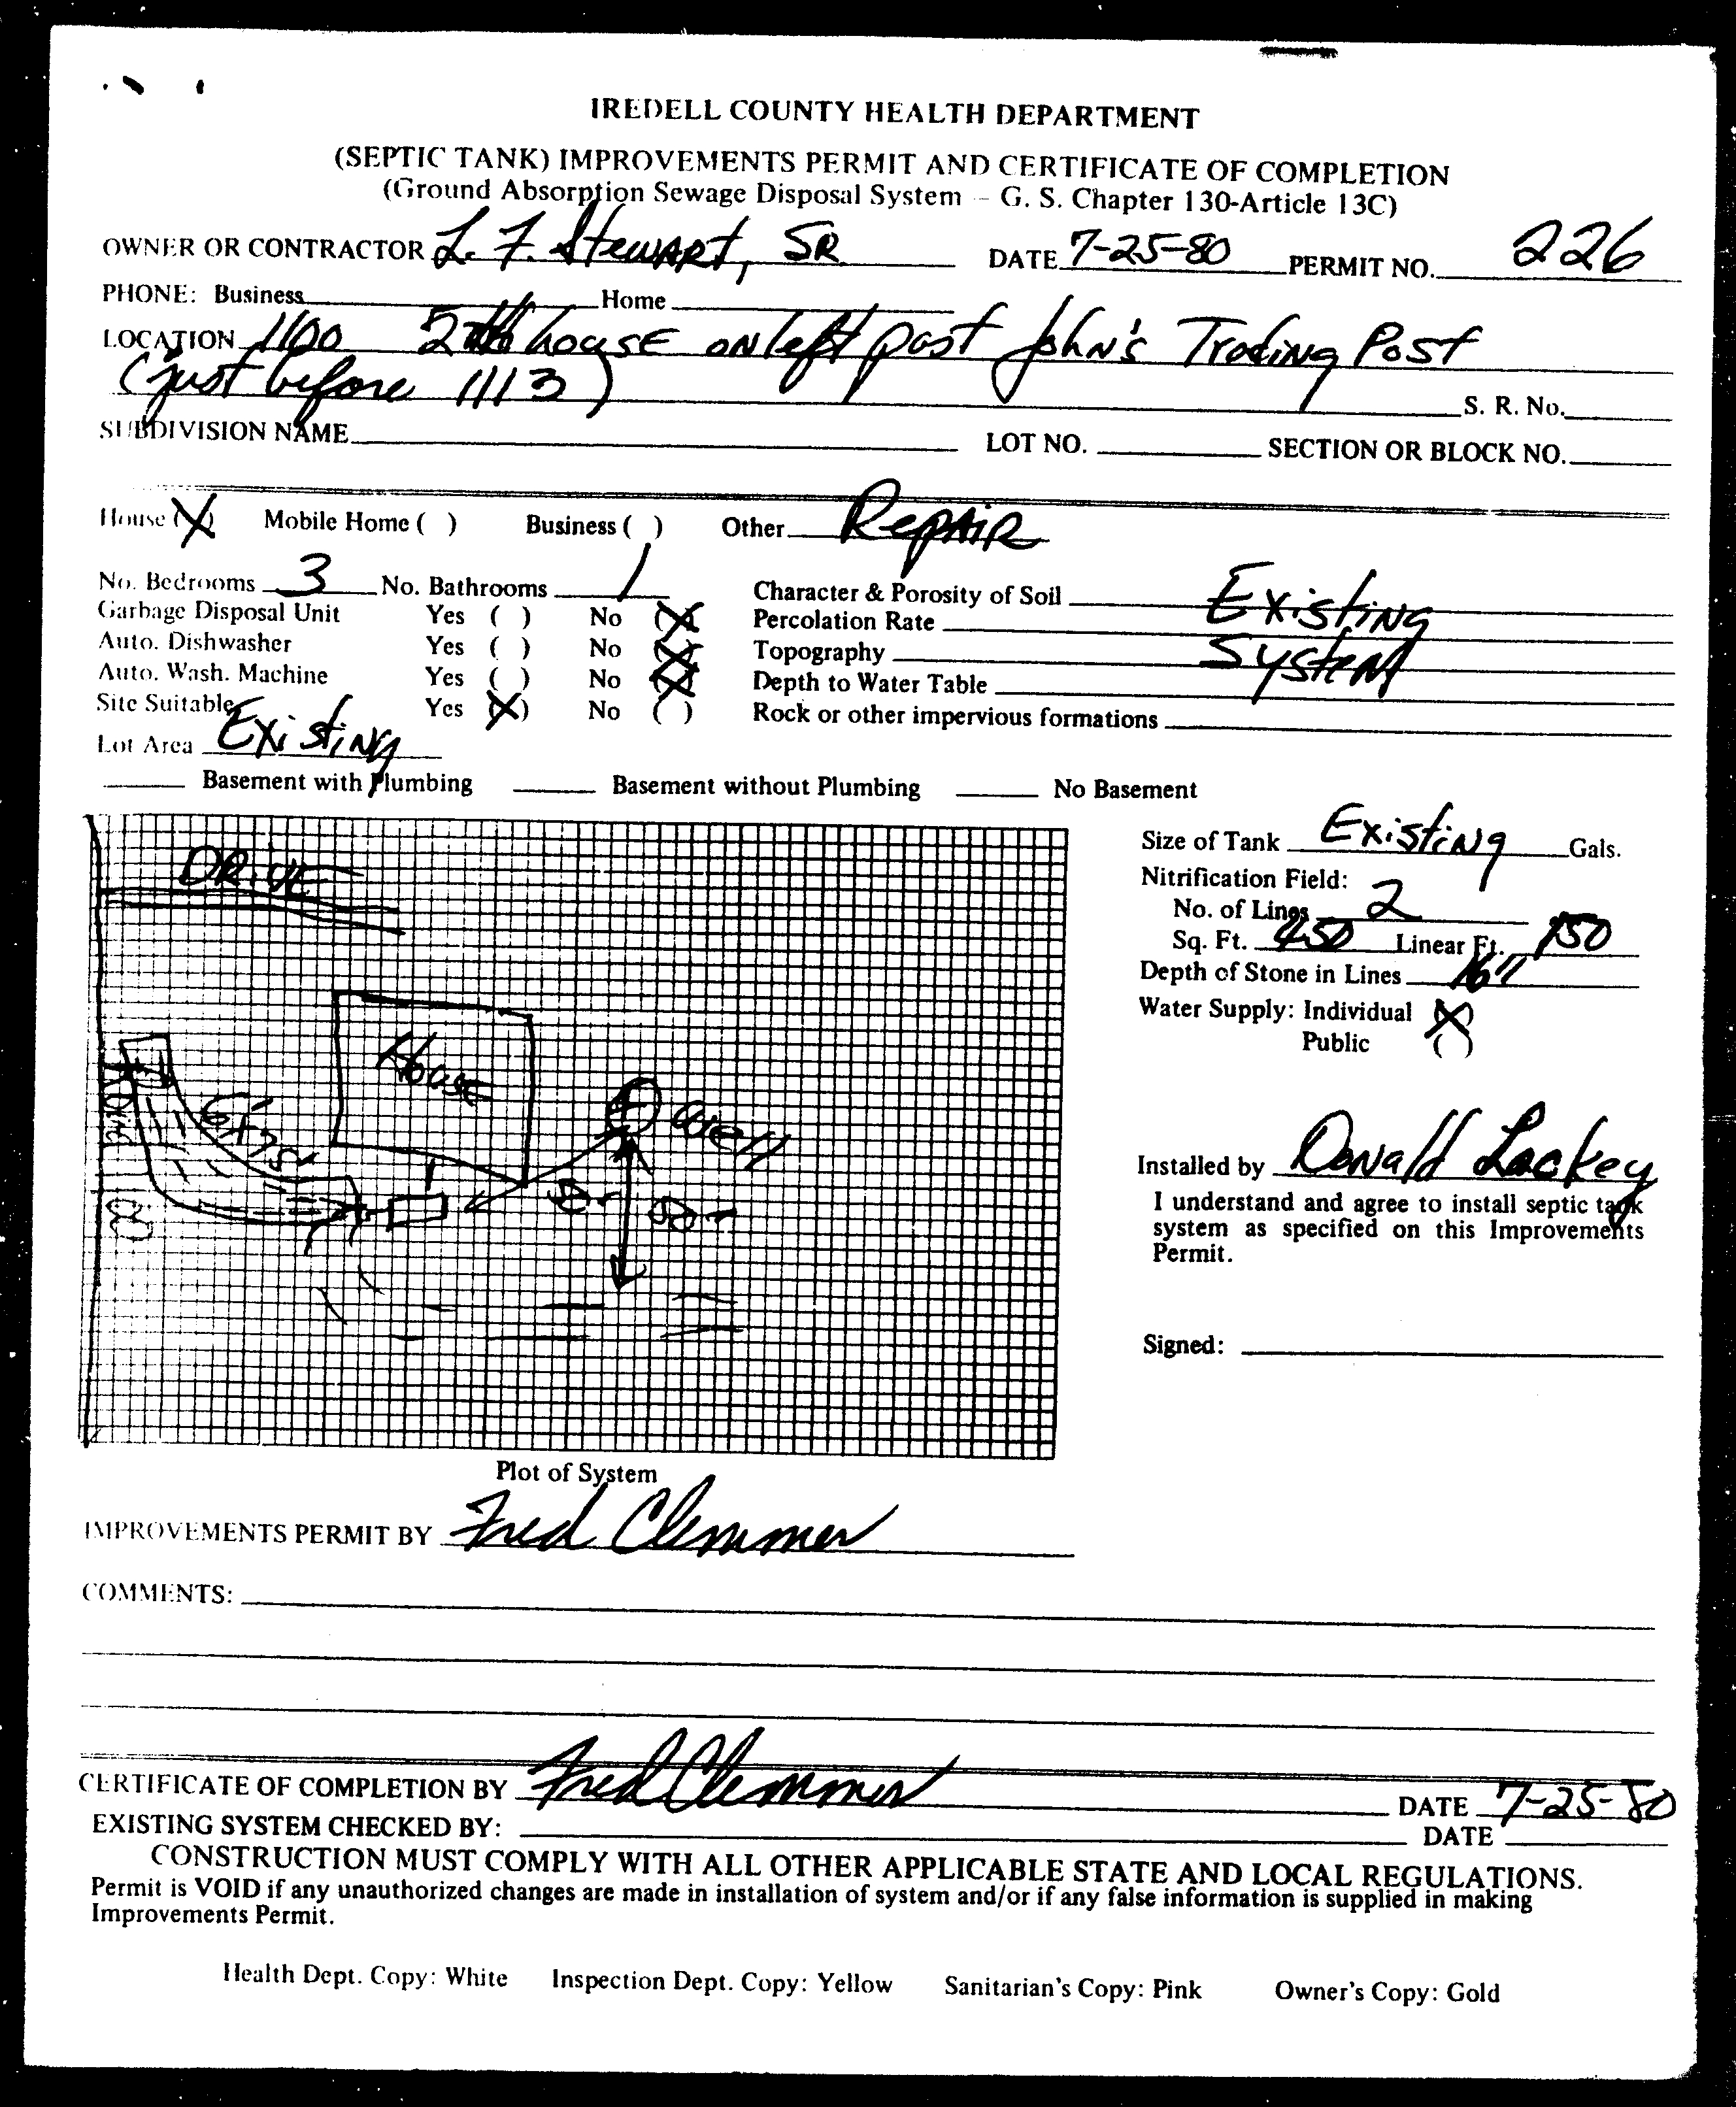 IREDELL COUNTY HEALTH DEPARTMENT
(SEPTIC TANK) IMPROVEMENTS PERMIT AND CERTIFICATE OF COMPLETION
(Ground Absorption Sewage Disposal System – G. S. Chapter 130-Article 13C)
OWNER OR CONTRACTOR L. F. Stewart, SR DATE 7-25-80 PERMIT NO. 226
PHONE: Business Home
LOCATION 1100 5th house on left past John's Trading Post
(just before 1113) S. R. No.
SUBDIVISION NAME LOT NO. SECTION OR BLOCK NO.
House (X) Mobile Home ( ) Business ( ) Other Repair
No. Bedrooms 3 No. Bathrooms 1 Character & Porosity of Soil Existing
Garbage Disposal Unit Yes ( ) No (X) Percolation Rate
Auto. Dishwasher Yes ( ) No (X) Topography System
Auto. Wash. Machine Yes ( ) No (X) Depth to Water Table
Site Suitable Yes (X) No ( ) Rock or other impervious formations
Lot Area Existing
Basement with Plumbing Basement without Plumbing No Basement
DRIVE
House
Well
Size of Tank Existing Gals.
Nitrification Field:
No. of Lines 2
Sq. Ft. 450 Linear Ft. 150
Depth of Stone in Lines 16"
Water Supply: Individual (X)
Public ( )
Installed by Donald Lackey
I understand and agree to install septic tank
system as specified on this Improvements
Permit.
Signed:
Plot of System
IMPROVEMENTS PERMIT BY Fred Clemmer
COMMENTS:
CERTIFICATE OF COMPLETION BY Fred Clemmer DATE 7-25-80
EXISTING SYSTEM CHECKED BY: DATE
CONSTRUCTION MUST COMPLY WITH ALL OTHER APPLICABLE STATE AND LOCAL REGULATIONS.
Permit is VOID if any unauthorized changes are made in installation of system and/or if any false information is supplied in making
Improvements Permit.
Health Dept. Copy: White Inspection Dept. Copy: Yellow Sanitarian's Copy: Pink Owner's Copy: Gold